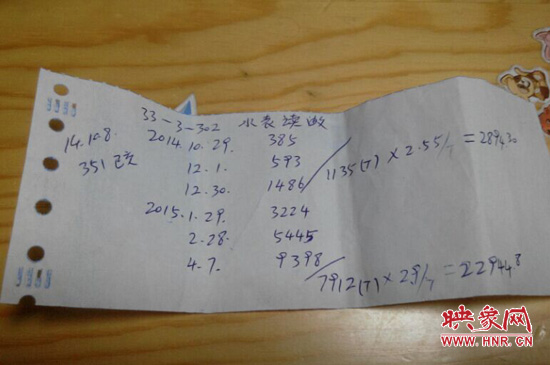 33-3-302 水表读数
14.10.8.
351
2014.10.29. 385
12.1. 593
12.30. 1486 / 1135(T) × 2.55/T = 2894.30
2015.1.29. 3224
2.28. 5445
4.7. 9398 / 7912(T) × 2.9/T = 22944.8
映象网
WWW.HNR.CN